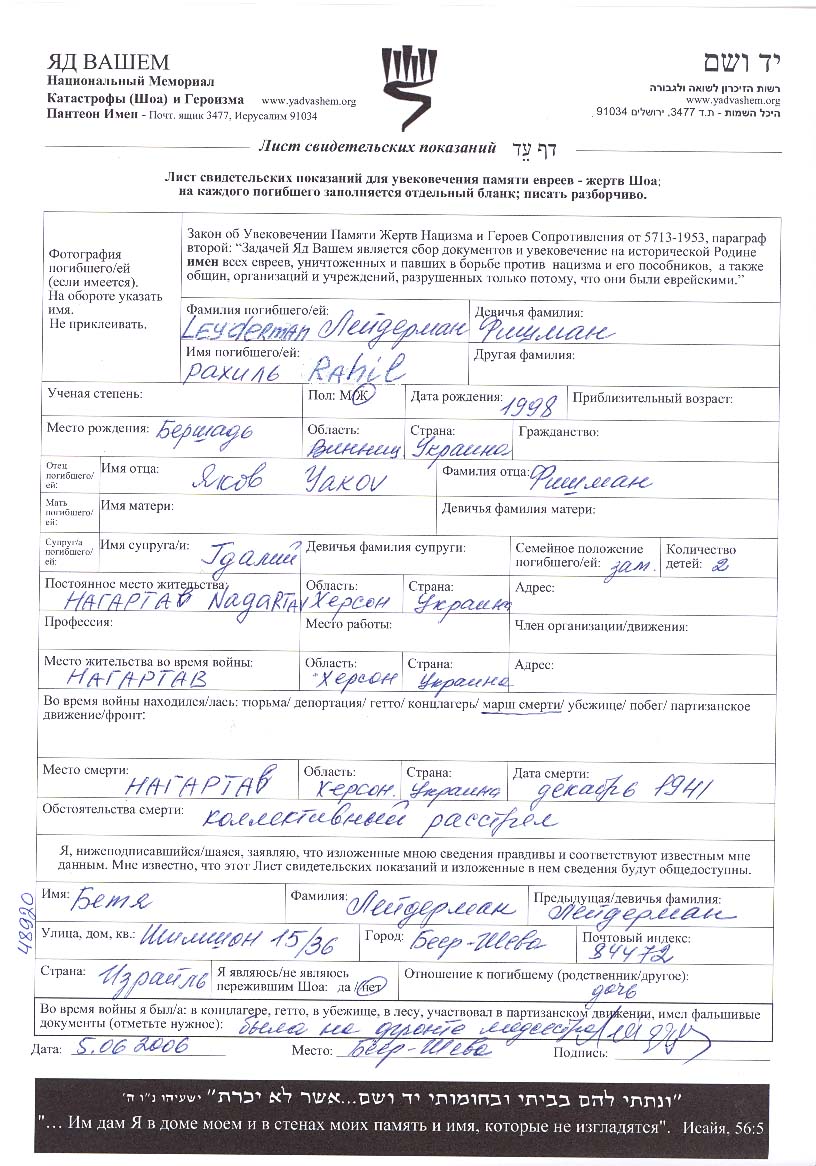 ЯД ВАШЕМ
Национальный Мемориал
Катастрофы (Шоа) и Героизма www.yadvashem.org
Пантеон Имен - Почт. ящик 3477, Иерусалим 91034
יד ושם
רשות הזיכרון לשואה ולגבורה
www.yadvashem.org
היכל השמות - ת.ד 3477, ירושלים 91034
Лист свидетельских показаний דף עֵד
Лист свидетельских показаний для увековечения памяти евреев - жертв Шоа;
на каждого погибшего заполняется отдельный бланк; писать разборчиво.
Фотография
погибшего/ей
(если имеется).
На обороте указать
имя.
Не приклеивать.
Закон об Увековечении Памяти Жертв Нацизма и Героев Сопротивления от 5713-1953, параграф
второй: “Задачей Яд Вашем является сбор документов и увековечение на исторической Родине
имен всех евреев, уничтоженных и павших в борьбе против нацизма и его пособников, а также
общин, организаций и учреждений, разрушенных только потому, что они были еврейскими.”
Фамилия погибшего/ей: Девичья фамилия:
Leyderman Лейдерман Фишман
Имя погибшего/ей: Другая фамилия:
Рахиль Rahil
Ученая степень: Пол: М/Ж Дата рождения: 1998 Приблизительный возраст:
Место рождения: Бершадь Область: Страна: Гражданство:
Винниц Украина
Отец погибшего/ей: Имя отца: Яков Yakov Фамилия отца: Фишман
Мать погибшего/ей: Имя матери: Девичья фамилия матери:
Супруг/а погибшего/ей: Имя супруга/и: Гдалий Девичья фамилия супруги: Семейное положение погибшего/ей: зам. Количество детей: 2
Постоянное место жительства: Область: Страна: Адрес:
НАГАРТАВ NAGARTAV Херсон Украина
Профессия: Место работы: Член организации/движения:
Место жительства во время войны: Область: Страна: Адрес:
НАГАРТАВ Херсон Украина
Во время войны находился/лась: тюрьма/ депортация/ гетто/ концлагерь/ марш смерти/ убежище/ побег/ партизанское
движение/фронт:
Место смерти: Область: Страна: Дата смерти:
НАГАРТАВ Херсон. Украина декабрь 1941
Обстоятельства смерти: коллективный расстрел
Я, нижеподписавшийся/шаяся, заявляю, что изложенные мною сведения правдивы и соответствуют известным мне
данным. Мне известно, что этот Лист свидетельских показаний и изложенные в нем сведения будут общедоступны.
48920
Имя: Бетя Фамилия: Лейдерман Предыдущая/девичья фамилия: Лейдерман
Улица, дом, кв.: Шимшон 15/36 Город: Беер-Шева Почтовый индекс: 84472
Страна: Израйль Я являюсь/не являюсь пережившим Шоа: да / нет Отношение к погибшему (родственник/другое): дочь
Во время войны я был/а: в концлагере, гетто, в убежище, в лесу, участвовал в партизанском движении, имел фальшивые
документы (отметьте нужное): была на фронте медсестра
Дата: 5.06 2006 Место: Беер-Шева Подпись:
”ונתתי להם בביתי ובחומותי יד ושם...אשר לא יכרת” ישעיהו נ"ו ה'
"... Им дам Я в доме моем и в стенах моих память и имя, которые не изгладятся". Исайя, 56:5